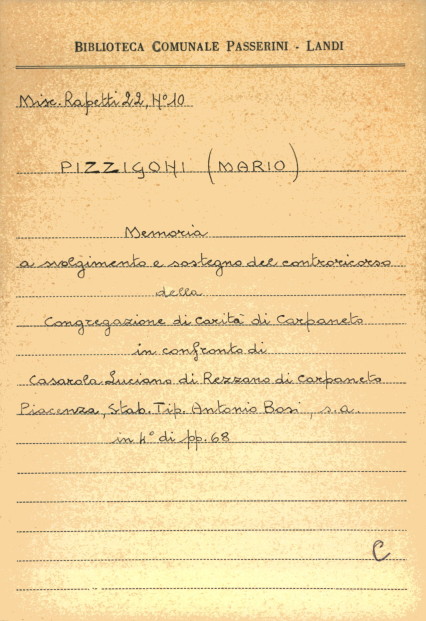 BIBLIOTECA COMUNALE PASSERINI - LANDI
Misc. Rapetti 22, N° 10
PIZZIGONI (MARIO)
Memoria
a svolgimento e sostegno del controricorso
della
Congregazione di Carità di Carpaneto
in confronto di
Casarola Luciano di Rezzano di Carpaneto
Piacenza, Stab. Tip. Antonio Bosi, s.a.
in 4° di pp. 68
C